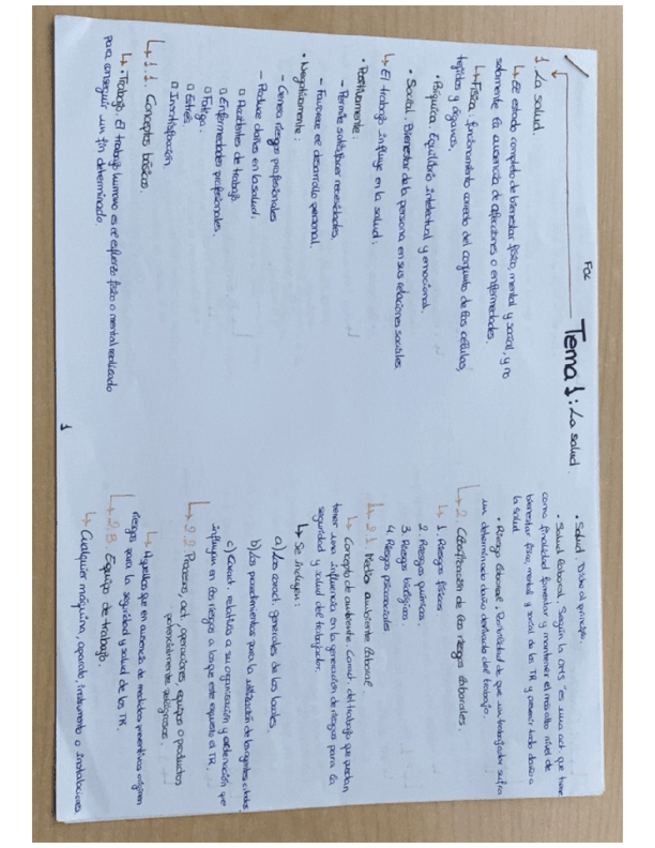 Fol
Tema 1: La salud.
1. La salud.
↳ Es estado completo de bienestar físico, mental y social, y no
solamente la ausencia de afecciones o enfermedades.
↳ Física: funcionamiento correcto del conjunto de las células,
tejidos y órganos.
• Psíquica. Equilibrio intelectual y emocional.
• Social. Bienestar de la persona en sus relaciones sociales.
↳ El trabajo influye en la salud:
• Positivamente:
- Permite satisfacer necesidades.
- Favorece el desarrollo personal.
• Negativamente:
- Genera riesgos profesionales
- Produce daños en la salud:
□ Accidentes de trabajo
□ Enfermedades profesionales.
□ Fatiga.
□ Estrés.
□ Insatisfacción
↳ 1.1. Conceptos básicos.
↳ • Trabajo. El trabajo humano es el esfuerzo físico o mental realizado
para conseguir un fin determinado.
1
• Salud. Dicho al principio.
• Salud laboral. Según la OMS "es una act que tiene
como finalidad fomentar y mantener el más alto nivel de
bienestar físico, mental y social de los TR y prevenir todo daño a
la salud
• Riesgo laboral. Posibilidad de que un trabajador sufra
un determinado daño derivado del trabajo.
↳ 2. Clasificación de los riesgos laborales.
↳ 1. Riesgos físicos
2. Riesgos químicos.
3. Riesgos biológicos.
4. Riesgos psicosociales
↳ 2.1 Medio ambiente laboral.
↳ Concepto de ambiente. Caract. del trabajo que puedan
tener una influencia en la generación de riesgos para la
seguridad y salud del trabajador.
↳ Se incluyen:
a) Las caract. generales de los locales.
b) Los procedimientos para la utilización de los agentes citados
c) Caract. relativas a su organización y ordenación que
influyan en los riesgos a los que este expuesto el TR.
↳ 2.2 Procesos, act, operaciones, equipos o productos
potencialmente peligrosos.
↳ Aquellos que en ausencia de medidas preventivas originen
riesgos para la seguridad y salud de los TR.
↳ 2.3 Equipo de trabajo.
↳ Cualquier máquina, aparato, instrumento o instalaciones